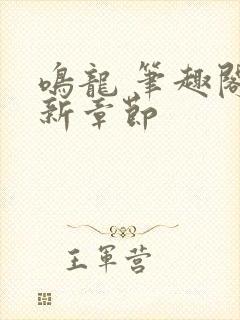 鳴龍 筆趣閣
新章節
王軍营